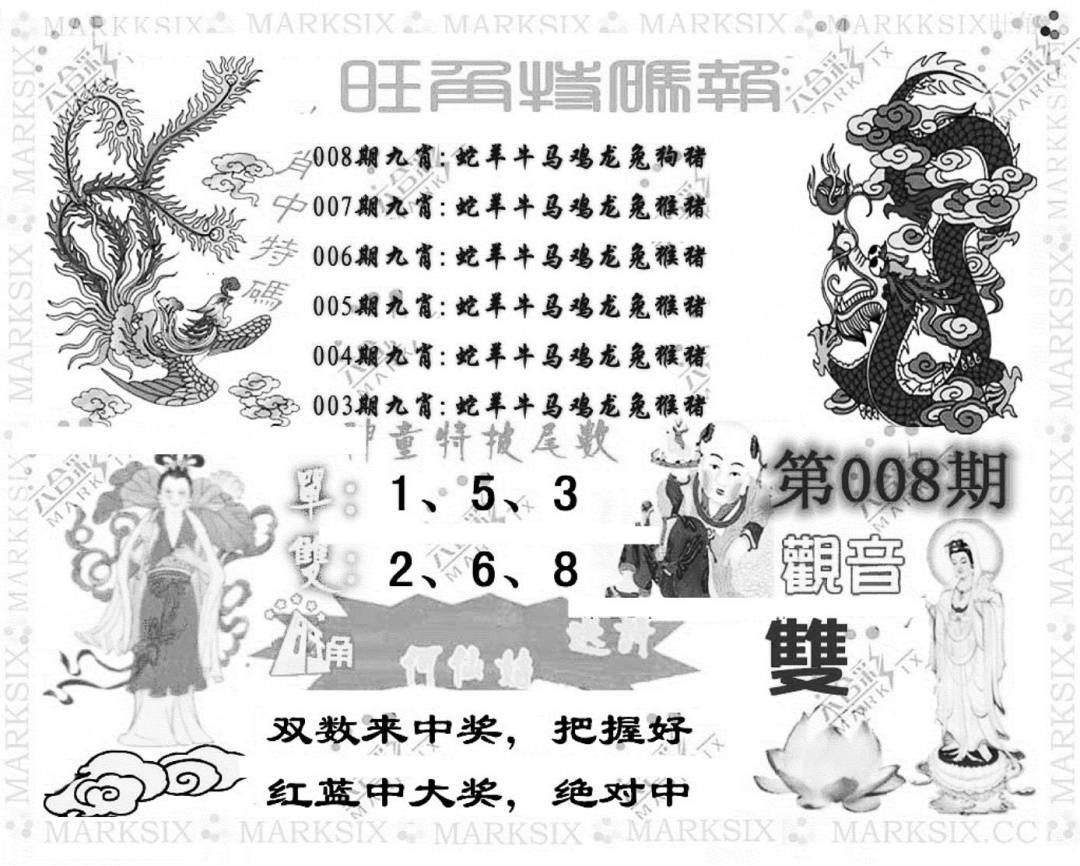 MARKSIX MARKSIX MARKSIX MARKKSIX
旺角特碼報
肖中特碼
008期九宵:蛇羊牛马鸡龙兔狗猪
007期九宵:蛇羊牛马鸡龙兔猴猪
006期九宵:蛇羊牛马鸡龙兔猴猪
005期九宵:蛇羊牛马鸡龙兔猴猪
004期九宵:蛇羊牛马鸡龙兔猴猪
003期九宵:蛇羊牛马鸡龙兔猴猪
神童特披尾數
單:1、5、3
雙:2、6、8
第008期
觀音
雙
旺角
何仙姑
双数来中奖，把握好
红蓝中大奖，绝对中
MARKSIX MARKSIX MARKSIX MARKSIX MARKSIX.CC